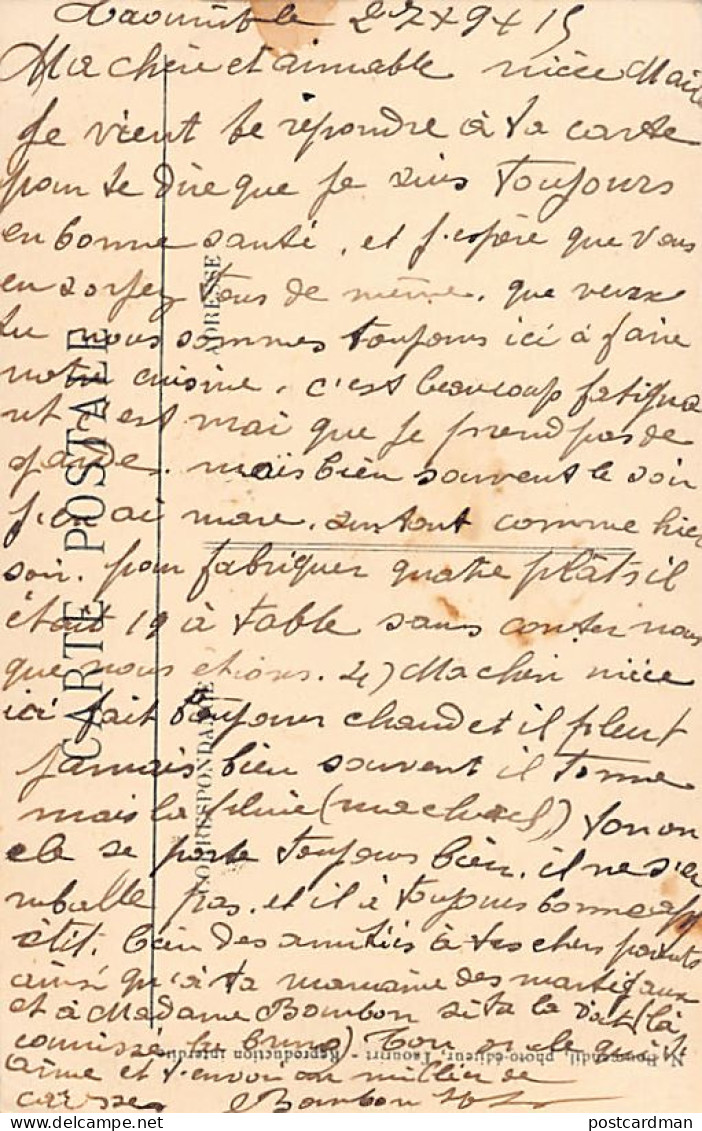 Taourirt le 27 X 9 X 15
Ma chère et aimable nièce
Je vient te répondre à ta carte
pour te dire que je suis toujours
en bonne santé, et j'espère que vous
en sorfez tous de même. que veux
tu nous sommes toujours ici à faire
notre cuisine, c'est beaucoup fatigua
nt c'est mai que je prend pas de
garde. mais bien souvent le soir
j'en ai mare, surtout comme hier
soir. pour fabriquer quatre plats il
était 19 à table sans conter nous
que nous étions. 4) Ma cheri nièce
ici fait toujours chaud et il pleut
jamais bien souvent il tonne
mais la pluie (macache) ton on
cle se porte toujours bien. il ne s'en
mballe pas. et il à toujours bonne app
étit. bien des amitiés à tes chers parents
ainsi qu'à ta mamaine des martigaux
et à Madame Bombon si ta la vat (là
ton oncle qui t
aime et t'envoi un millier de
caresses Bombon
CARTE POSTALE
CORRESPONDANCE
ADRESSE
photo-éditeur, Taourirt - Reproduction interdite
postcardman